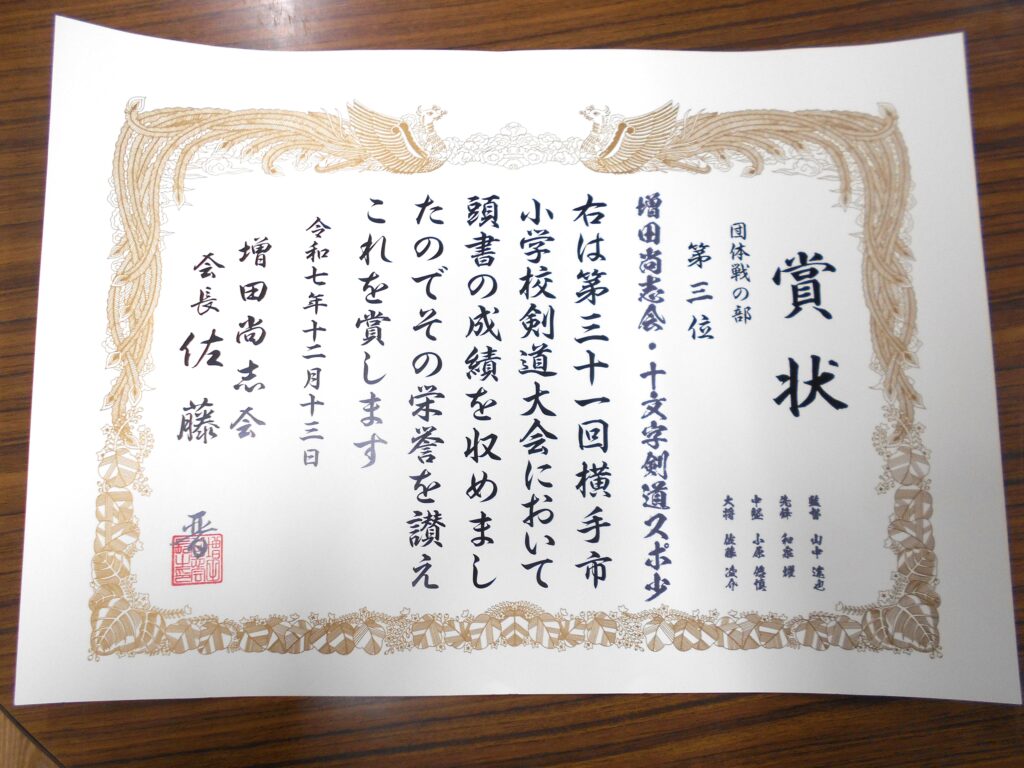 賞状
団体戦の部
第三位
監督 山中 達也
先鋒 和泉 燿
中堅 小原 悠慎
大将 佐藤 凌介
増田尚志会・十文字剣道スポ少
右は第三十一回横手市
小学校剣道大会において
頭書の成績を収めまし
たのでその栄誉を讃え
これを賞します
令和七年十二月十三日
増田尚志会
会長 佐藤 晋